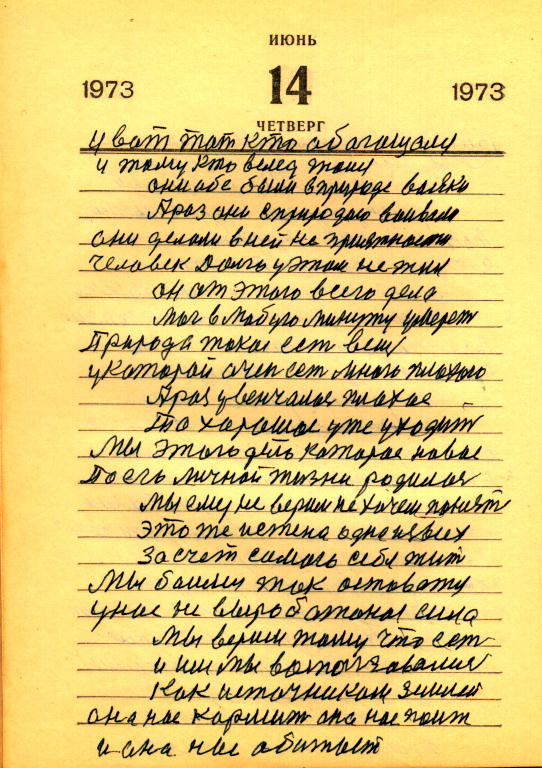 ИЮНЬ
1973 14 1973
ЧЕТВЕРГ
и вот тот кто обогощали
и тому кто вслед тому
они обе были в природе вояки
А раз они с природою воивали
они делали в ней не приятности
человек долго у этом не жил
он от этого всего дела
мог в любую минуту умереть
Природа такая есть вещ
у каторой очен ест много плохого
А раз увенчалося плохое
То хорошое уже уходит
Мы этого дела которое новое
После личной жизни родилося
мы ему не верим не хочем понят
это же истена одна из всех
За счет самого себя жит
Мы боимся так остоватся
у нас не выроботоная сила
мы верим тому что ест
и им мы воспользовалися
Как источником землей
она нас кормит она нас поит
и она нас